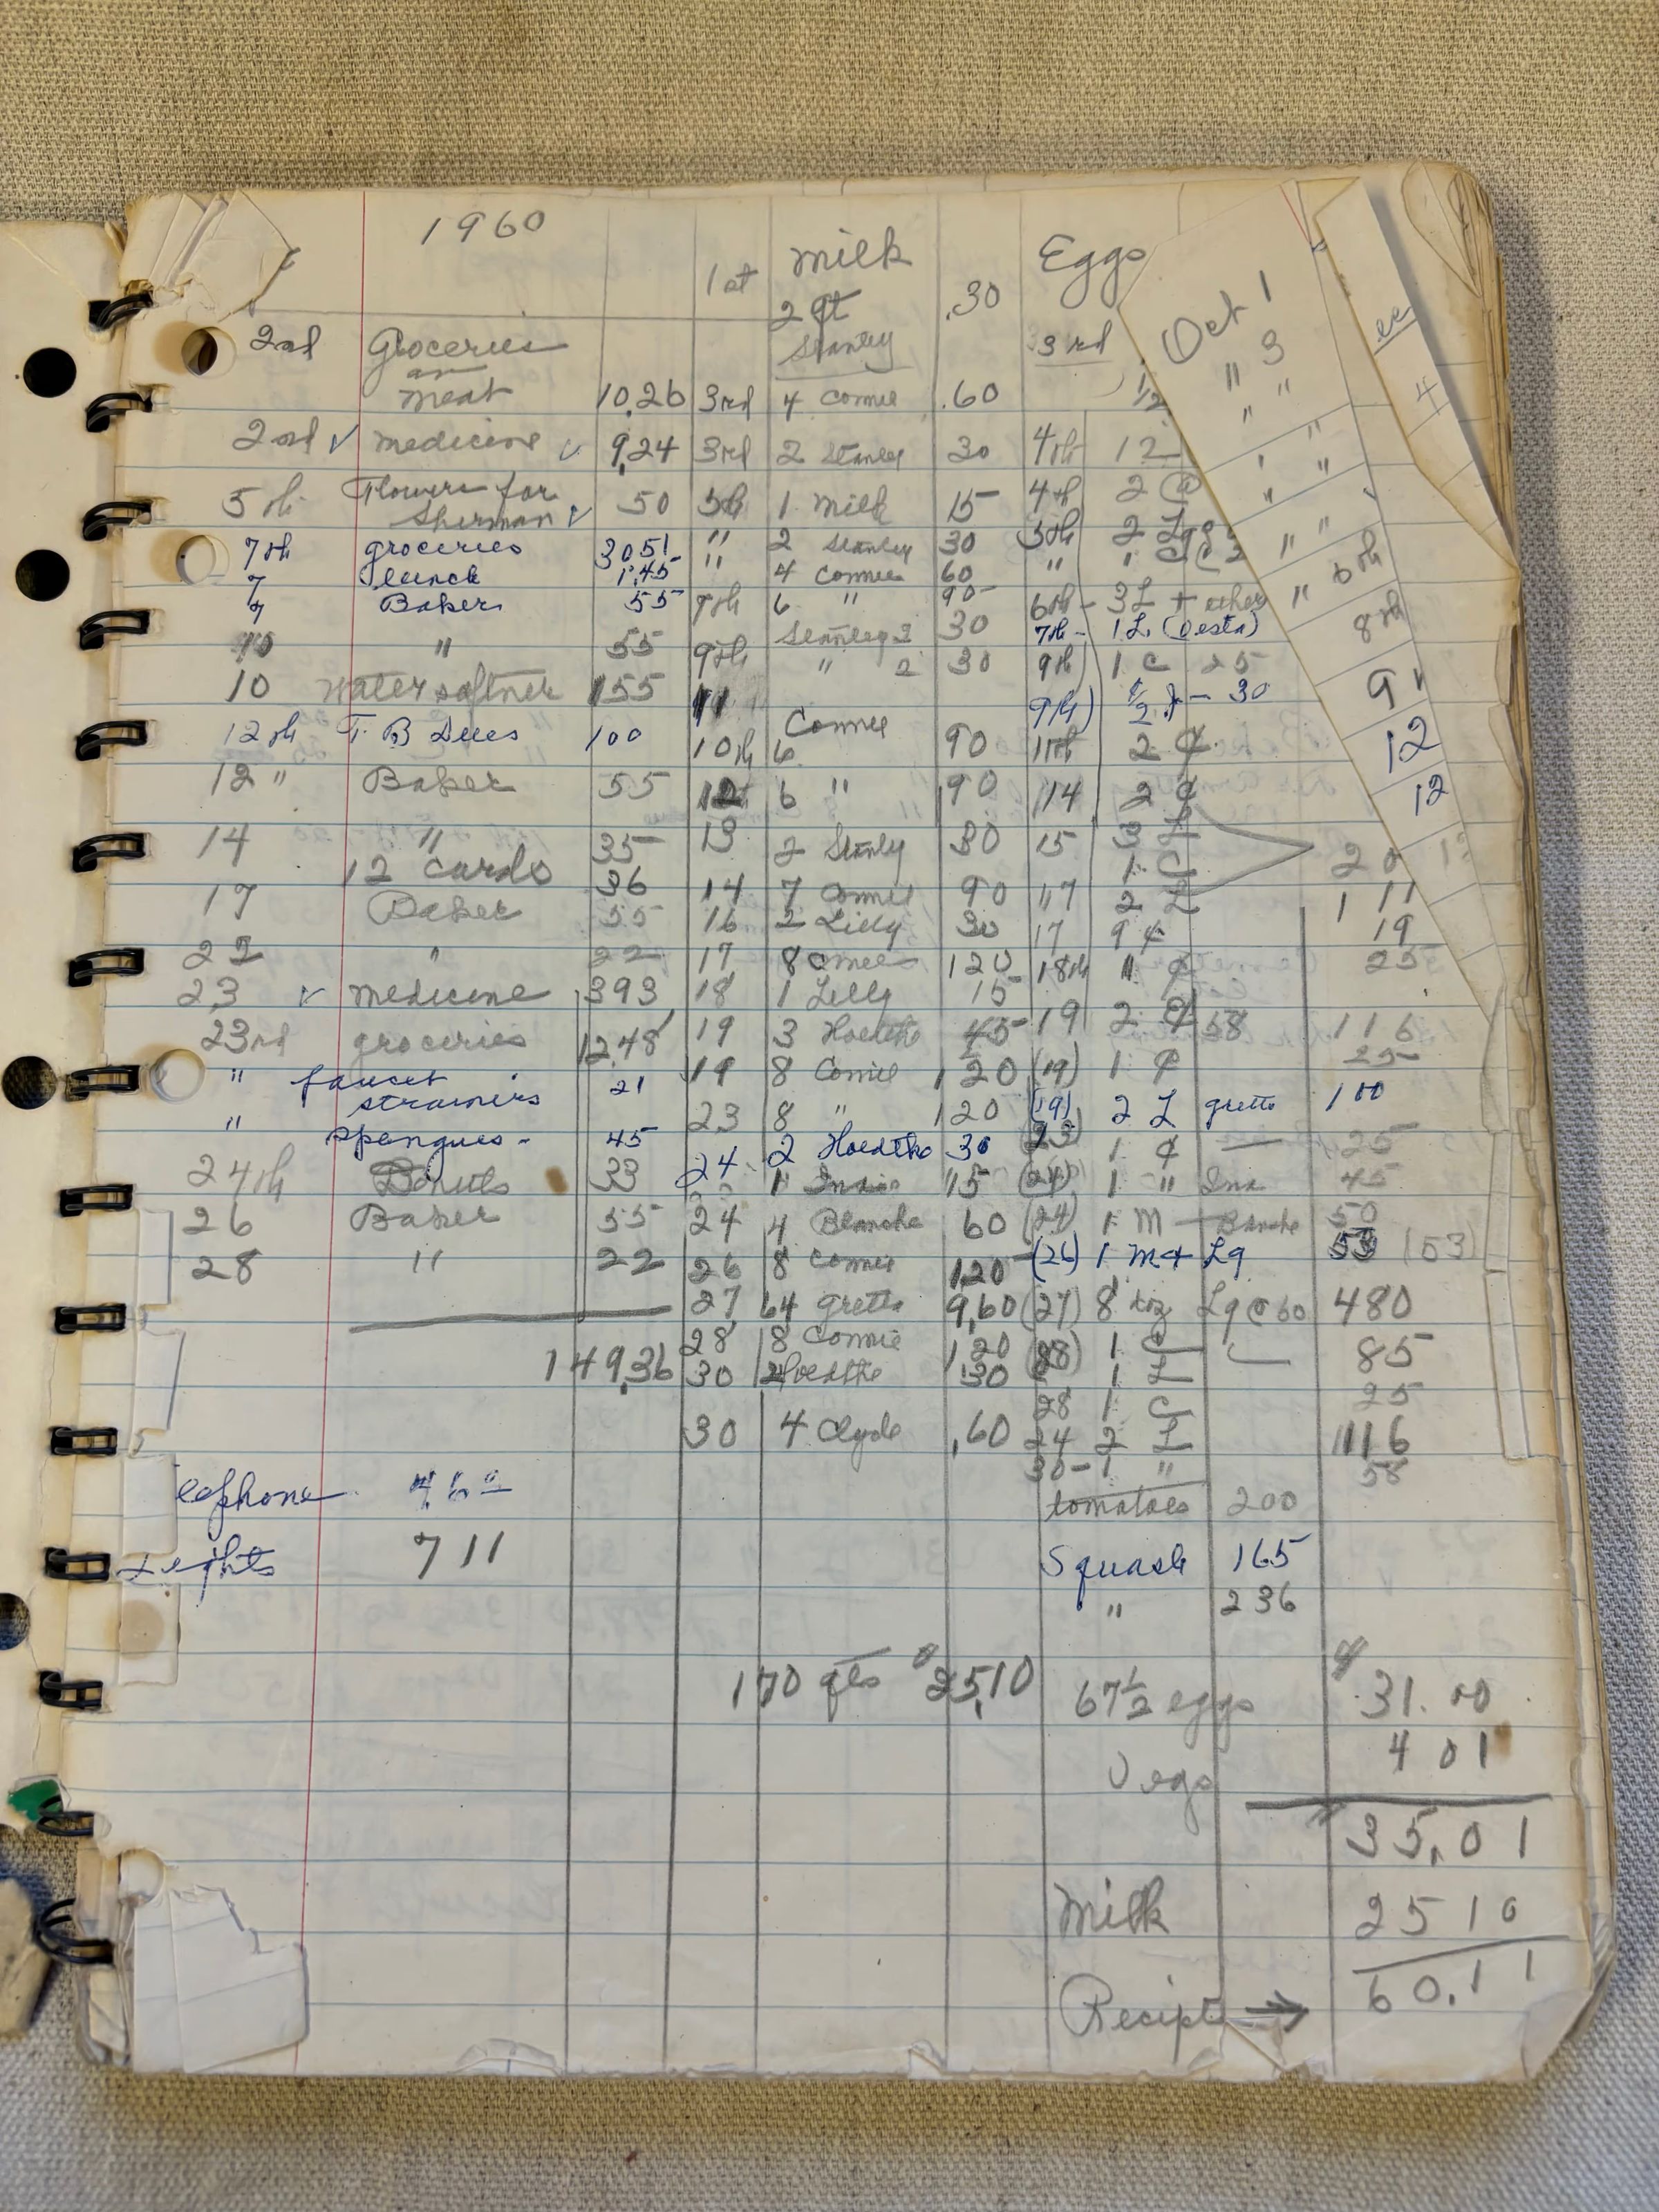 1960
1st milk .30 Eggs
2 qt
2nd Groceries Stanley 3rd
meat 10.26 3rd 4 Connie .60 1/2
2nd ✓ medicine ✓ 9.24 3rd 2 Stanley 30 4th 12
5th Flowers for 50 5th 1 milk 15 4th 2
Sherman ✓
7th groceries 3051 " 2 Stanley 30 5th 2
7 lunch 1.45 " 4 Connie 60 " 1
7 Baker 55 7th 6 " 90 6th - 3 L + other
10 " 55 Stanley 2 30 7th - 1 L. (Vesta)
9th " 2 30 9th) 1 C 25
10 Water softner 155 11 9th) 1/2 - 30
12th T. B Dues 100 10th 6 Connie 90 11th 2 ¢
12 " Baker 55 12 6 " 90 14 2 ¢
14 " 35 13 2 Stanly 30 15 3 L
1 C 20
12 cards 36 14 7 Connie 90 17 2 L 1 11
17 Baker 55 16 2 Lilly 30 17 9 ¢ 19
22 " 22 17 8 Connee 120 18th " ¢ 25
23 ✓ medicine 393 18 1 Lilly 15
23rd groceries 12.48 19 3 Hoedtke 45 19 2 ¢ 58 116
19 8 Connie 120 (19) 1 ¢ 25
" faucet 21
strainers 23 8 " 120 (19) 2 L gretta 100
" spengues - 45 24 2 Hoedtke 30 (23) 1 ¢ — 25
24th Donuts 33 1 15 (24) 1 " Ina 45
26 Baker 55 24 4 Blanche 60 (24) 1 M — Blanche 50
28 " 22 26 8 Connie 1.20 (26) 1 M + Lg 53 (53)
27 64 gretta 9.60 (27) 8 doz Lg @ 60 480
149.36 28 8 Connie 1.20 (28) 1 C 85
30 2 Hoedtke 30 1 L
28 1 C 25
30 4 Clyde .60 24 2 L 116
30 - 1 " 58
tomatoes 200
ephone 46
Lights 711
Squash 165
" 236
170 qts $25.10 67 1/2 eggs $31.00
Vegs 4 01
35.01
Milk 25 10
Recipts → 60.11
Oct 1
" 3
" "
" "
" "
" "
" 5th
8th
9
12
12
4